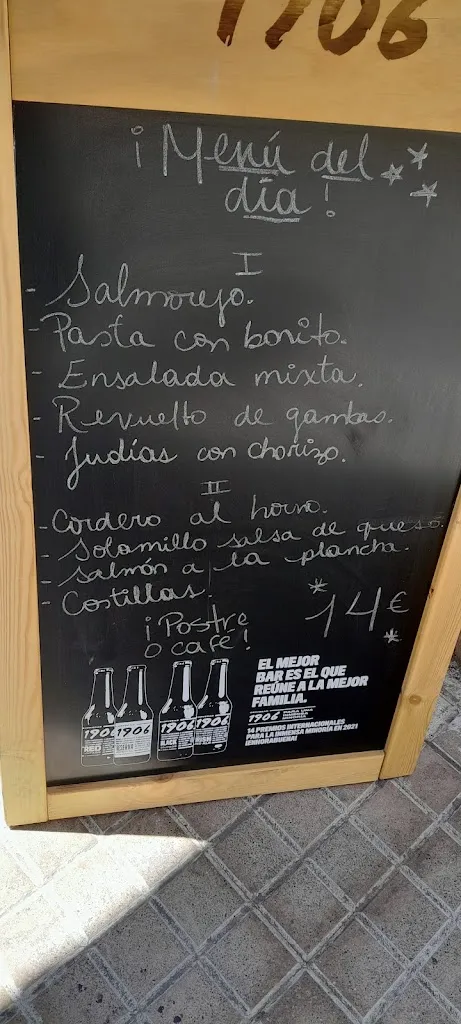 1906
¡Menú del
día!
I
- Salmorejo.
- Pasta con bonito.
- Ensalada mixta.
- Revuelto de gambas.
- Judías con chorizo.
II
- Cordero al horno.
- Solomillo salsa de queso.
- Salmón a la plancha.
- Costillas.
14€
¡Postre
o café!
1906 1906 1906 1906
RED BLACK
EL MEJOR
BAR ES EL QUE
REÚNE A LA MEJOR
FAMILIA.
1906
14 PREMIOS INTERNACIONALES
PARA LA INMENSA MINORÍA EN 2021
¡ENHORABUENA!